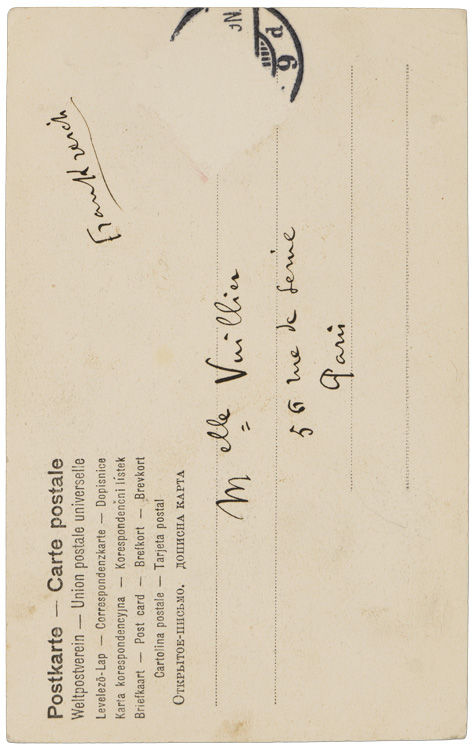 Postkarte — Carte postale
Weltpostverein — Union postale universelle
Levelező-Lap — Correspondenzkarte — Dopisnice
Karta korespondencyjna — Korespondenční lístek
Briefkaart — Post card — Brefkort — Brevkort
Cartolina postale — Tarjeta postal
Открытое-письмо. дописна карта
Frankreich
Melle Vuillier
56 rue de Seine
Paris
9 d